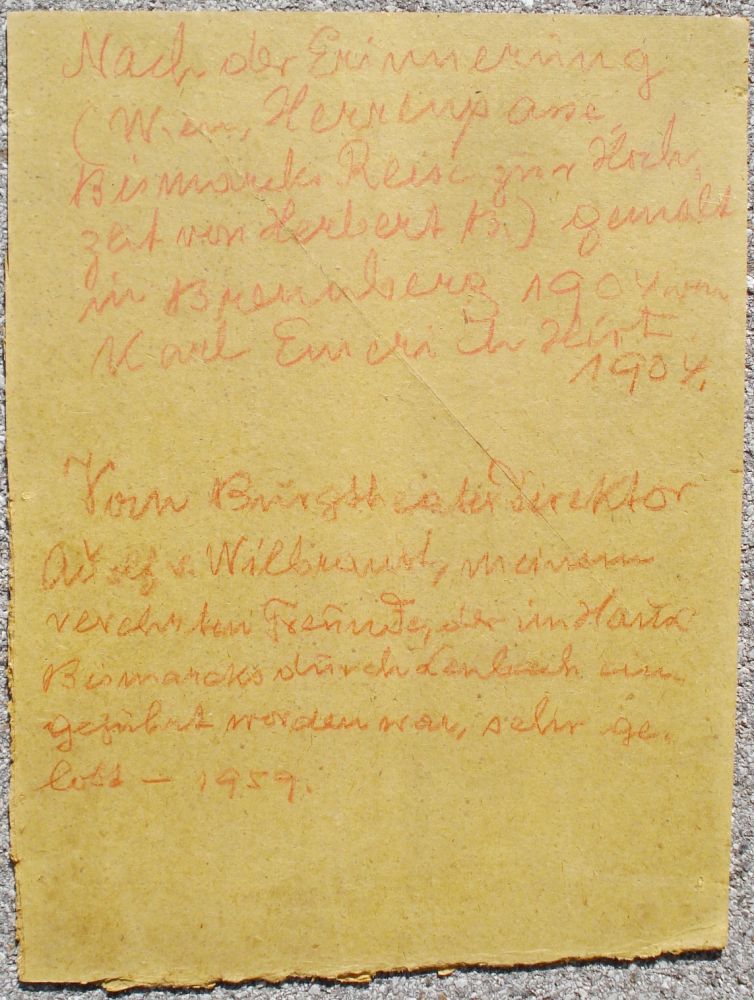 Nach der Erinnerung
(Wien, Herrengasse,
Bismarcks Reise zur Hoch,
zeit von Herbert B.) gemalt
in Brennberg 1904 von
Karl Emerich Hirt
1904.
Vom Burgtheaterdirektor
Adolf v. Wilbrandt, meinem
verehrten Freunde, der im Hause
Bismarcks durch Lenbach ein-
geführt worden war, sehr ge-
lobt – 1959.